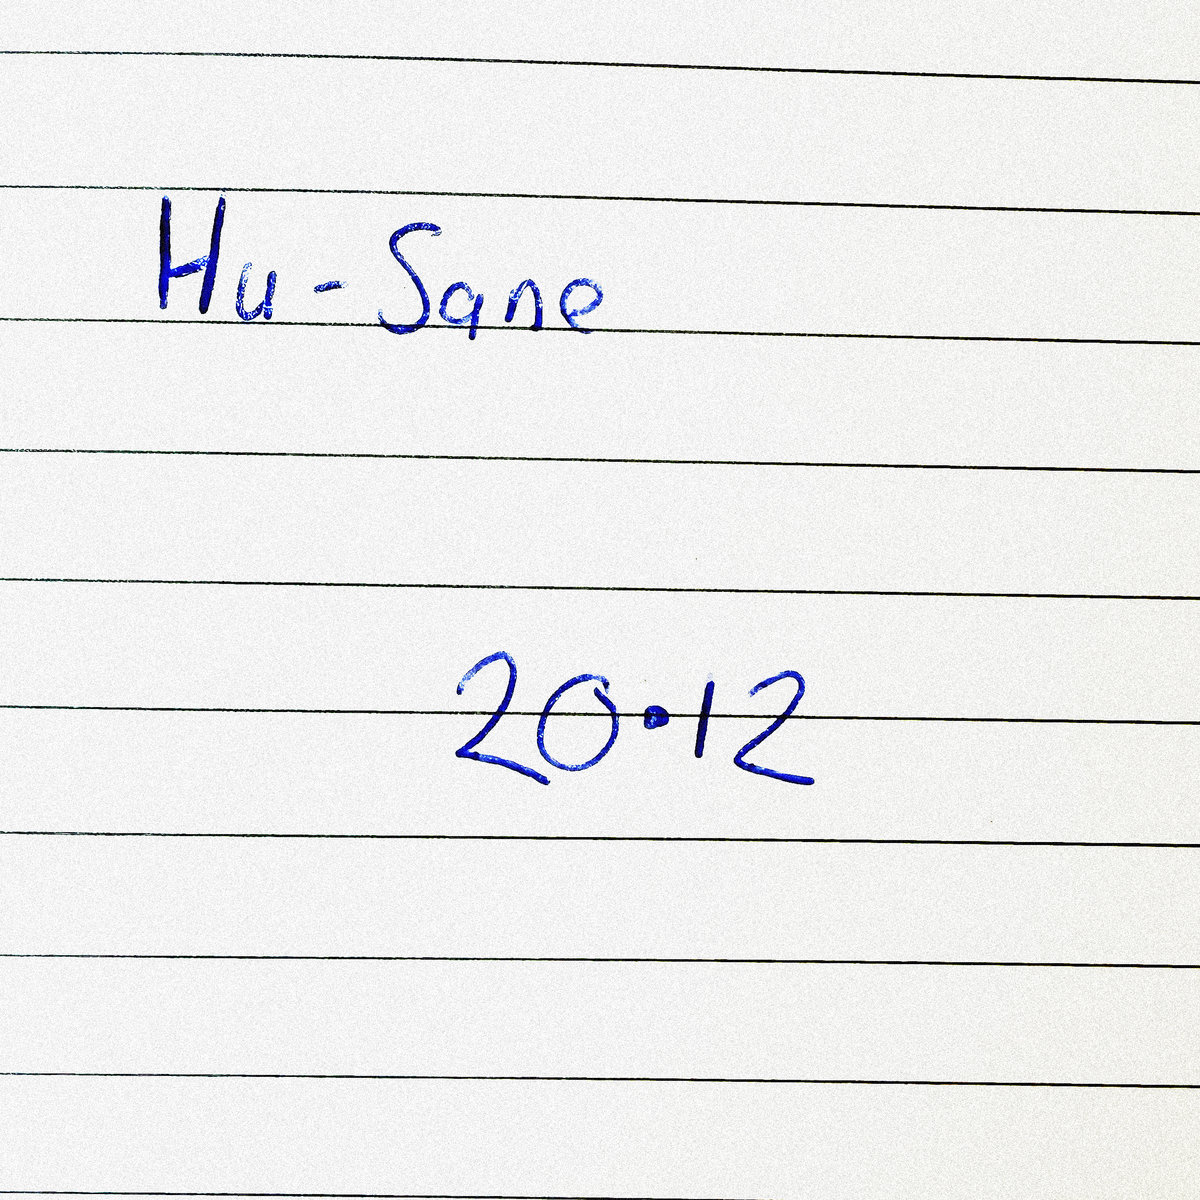 Hu-Sane
20.12